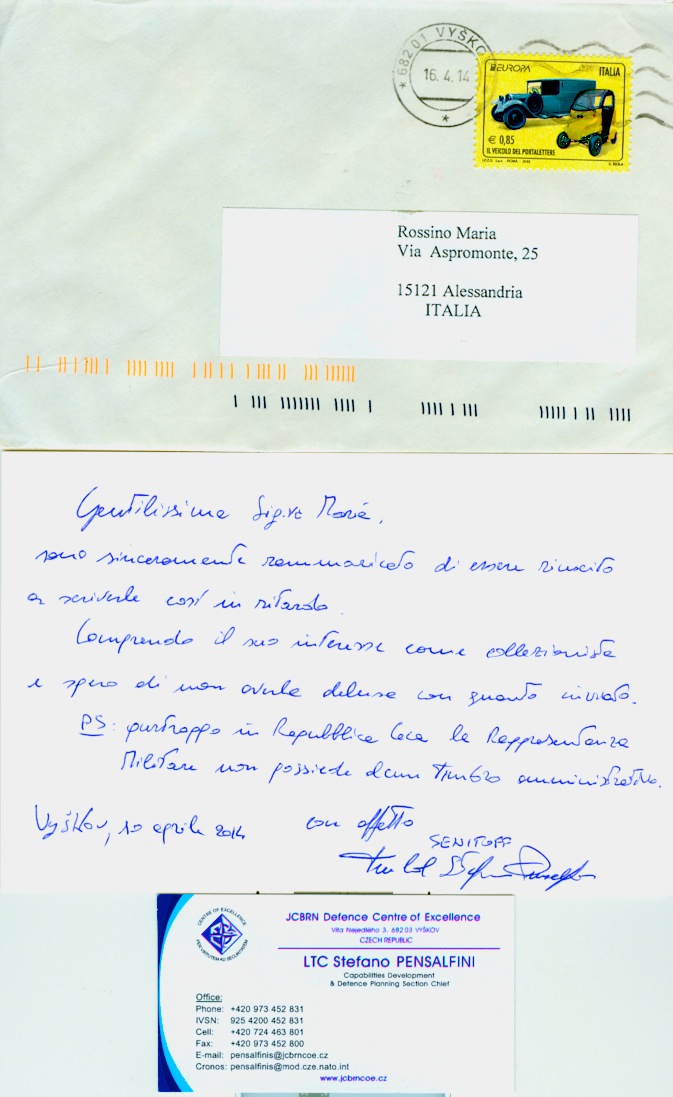 68201 VYŠKO
16. 4. 14
EUROPA
ITALIA
€ 0,85
IL VEICOLO DEL PORTALETTERE
Rossino Maria
Via Aspromonte, 25
15121 Alessandria
ITALIA
Gentilissima Sig.ra Maria,
sono sinceramente rammaricato di essere riuscito
a scriverle così in ritardo.
Comprendo il suo interesse come collezionista
e spero di non averla delusa con quanto inviato.
PS: purtroppo in Repubblica Ceca la Rappresentanza
Militare non possiede alcun timbro amministrativo.
Vyškov, 10 aprile 2014
con affetto
SENITOFF
CENTRE OF EXCELLENCE
PER VIRTUTEM AD SECURITATEM
JCBRN Defence Centre of Excellence
Víta Nejedlého 3, 682 03 VYŠKOV
CZECH REPUBLIC
LTC Stefano PENSALFINI
Capabilities Development
& Defence Planning Section Chief
Office:
Phone: +420 973 452 831
IVSN: 925 4200 452 831
Cell: +420 724 463 801
Fax: +420 973 452 800
E-mail: pensalfinis@jcbrncoe.cz
Cronos: pensalfinis@mod.cze.nato.int
www.jcbrncoe.cz